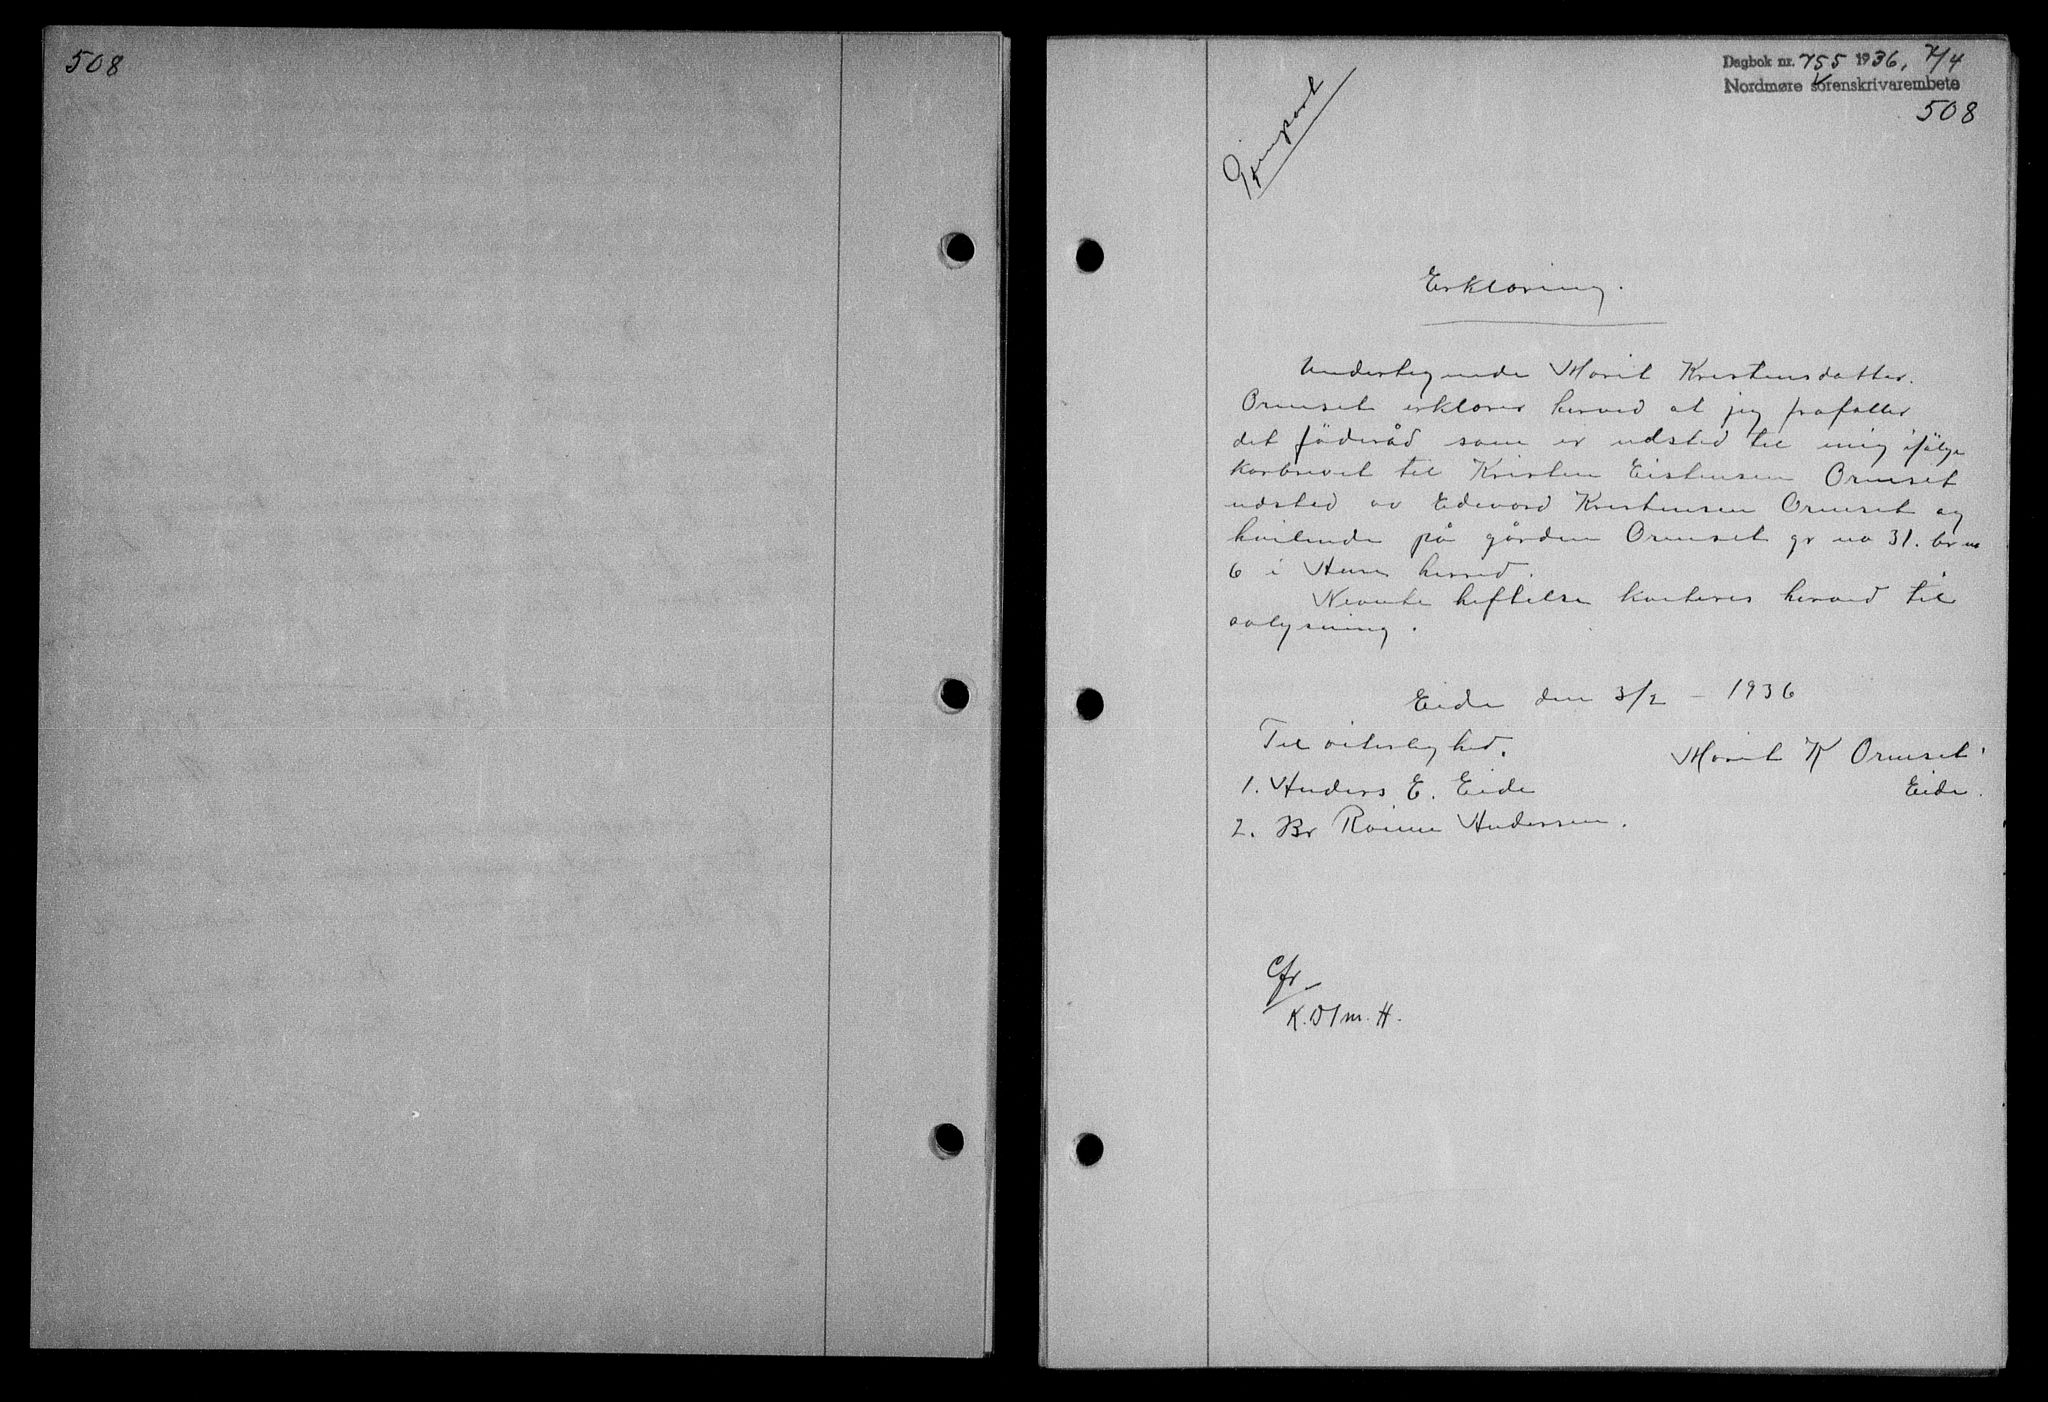 508
Dagbok nr. 755 1936, 7/4
Nordmøre sorenskrivarembete
508
Gjenpart
Erklæring.
Undertegnede Marit Kristensdatter.
Ormset erklærer herved at jeg frafaller
det föderåd som er udsted til mig ifölge
karbrevet til Kristen Eistensen Ormset
udsted av Edevard Kristensen Ormset og
hvilende på gården Ormset gr no 31. br no
6 i Ure herred.
Nevnte heftelse kviteres herved til
avlysning.
Eide den 3/2 - 1936
Til viterlighed.
Marit K Ormset
Eide.
1. Anders E. Eide
2. Br Andersen.
Cfr
K. D/m. H.